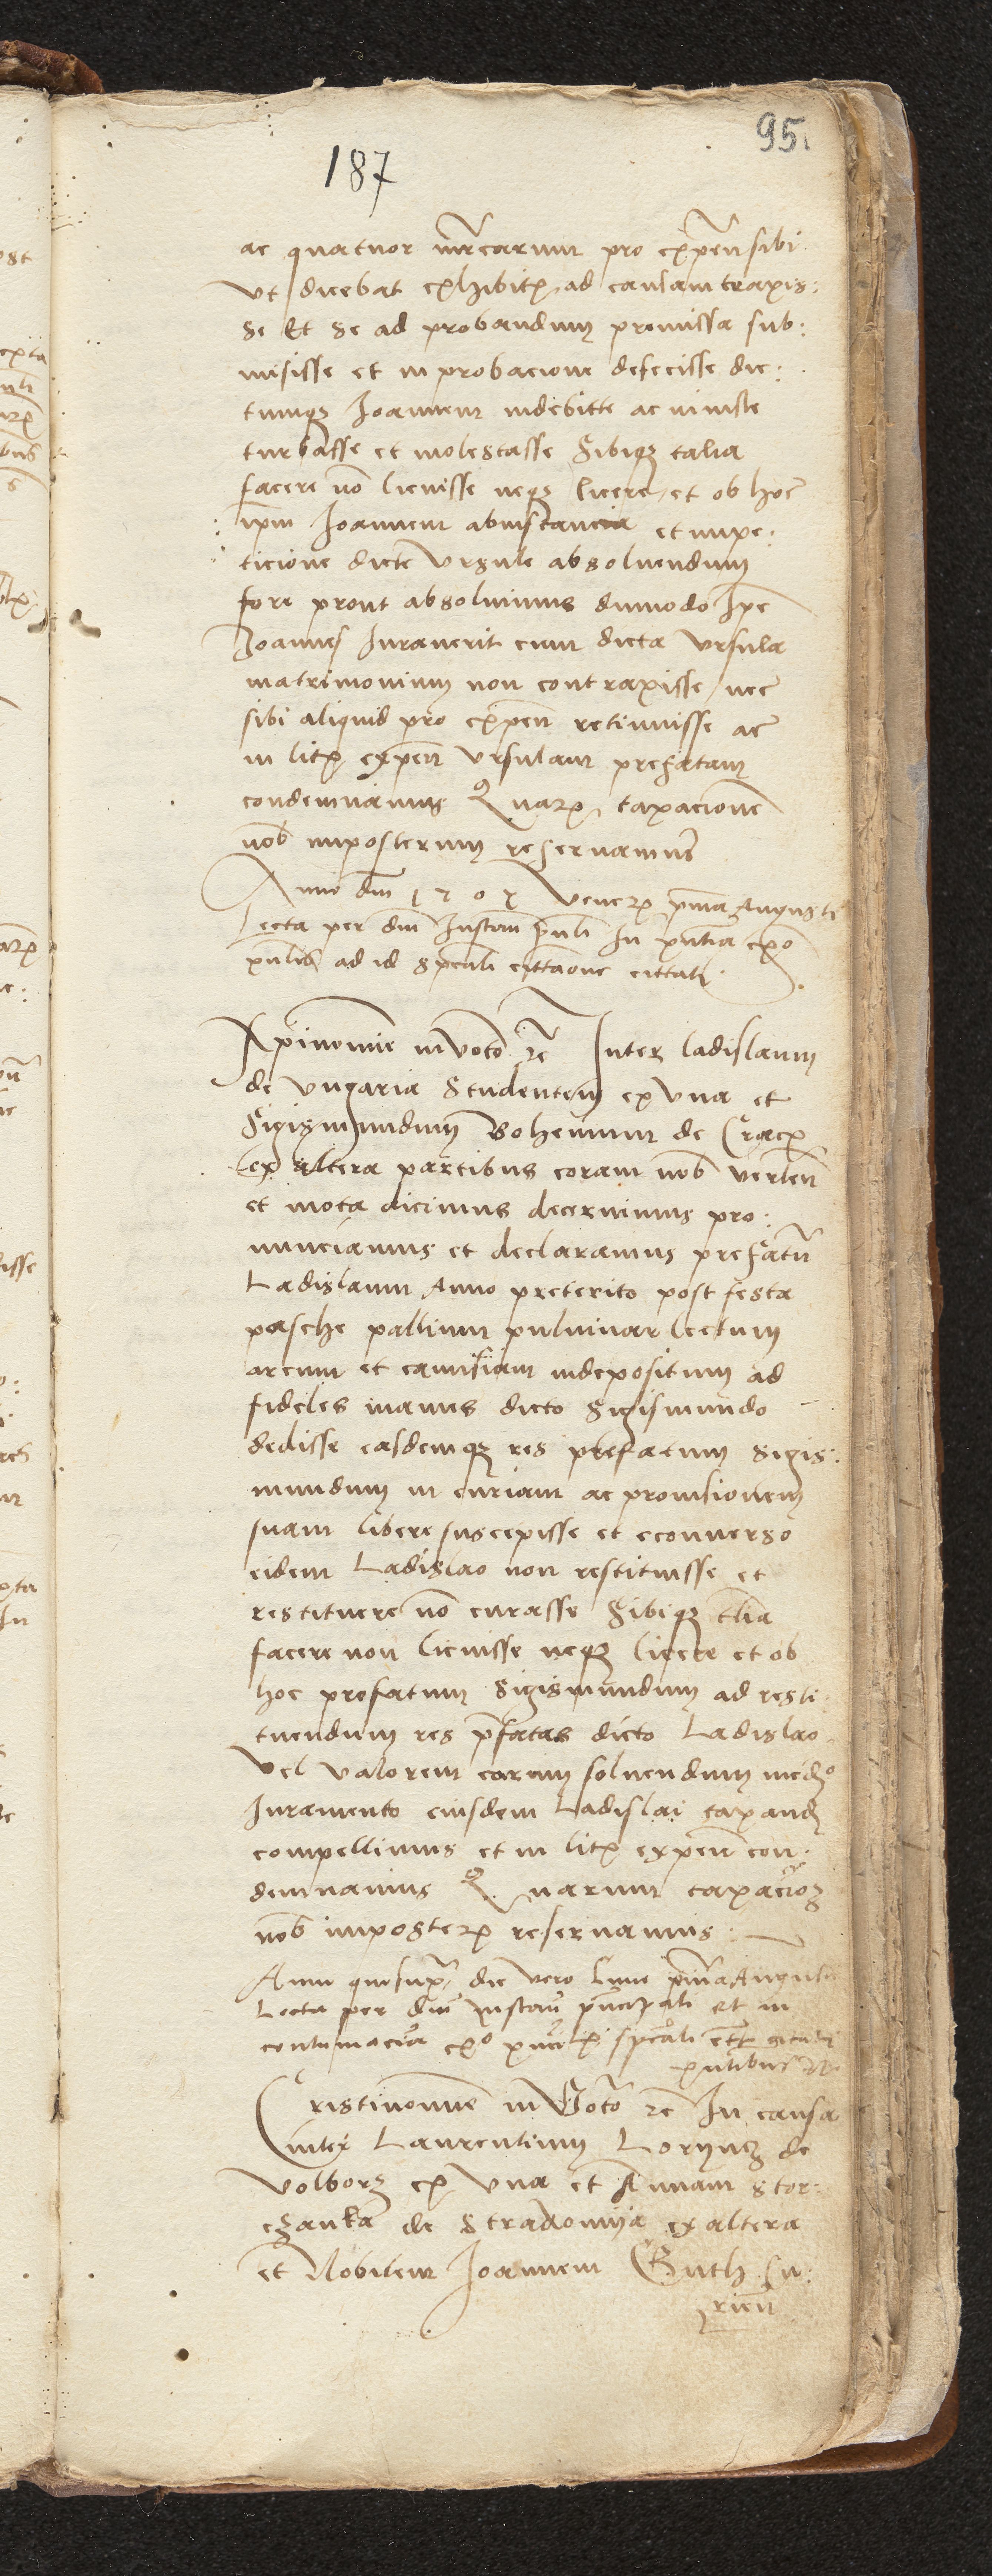 95.
187
ac quatuor mrcarum pro expen sibi
Vt dicebat exhibit ad causam traxis:
se Et se ad probandum premissa sub:
misisse et in probacione defecisse dic:
tumqz Joannem indebitte ac iniuste
turbasse et molestasse Sibiqz talia
facere no licuisse neqz licere et ob hoc
ipm Joannem abinstancia et impe:
ticione dicte Vrsule absoluendum
fore prout absoluimus dumodo Ipe
Joannes Iurauerit cum dicta Vrsula
matrimonium non contraxisse nec
sibi aliquid pro expen retinuisse ac
in lit expen Vrsulam prefatam
condemnamus Quar taxacione
nob imposterum reseruamus
Anno dm 1505 Vener pma Augusti
Lecta per dm Instan pnli In pntia exo
pnlis ad id speali cittaone cittati
Xpinomine inuoto rc Inter ladislaum
de Vngaria Studentem ex Vna et
Sigismundum Bohemum de Crac
ex altera partibus coram nob verten
et mota dicimus decernimus pro:
nunciamus et declaramus prefatu
Ladislaum Anno preterito post festa
pasche pallium puluinar lectum
arcum et camisiam indepositum ad
fideles manus dicto Sigismundo
dedisse easdemqz res prefatum Sigis:
mundum in curiam ac prouisionem
suam libere suscepisse et econuerso
eidem Ladislao non restituisse et
restituere no curasse Sibiqz tlia
facere non licuisse neqz licere et ob
hoc prefatum Sigismundum ad resti
tuendum res pfatas dicto Ladislao
Vel valorem earum soluendum medo
Iuramento eiusdem Ladislai taxand
compellimus et in lit expen con:
demnamus Quarum taxacioz
nob imposter reseruamus
Anno quosup die vero Lune pma Augusti
Lecta per dm Instan pncipali et in
contumacia exo pnci speali citt citati
pntibus
Cristinomine inuoto rc In causa
inter Laurentium Loryncz de
Volborz ex Vna et Annam Stor:
czanka de Stradomija ex altera
et Nobilem Joannem Guth Cu:
rien